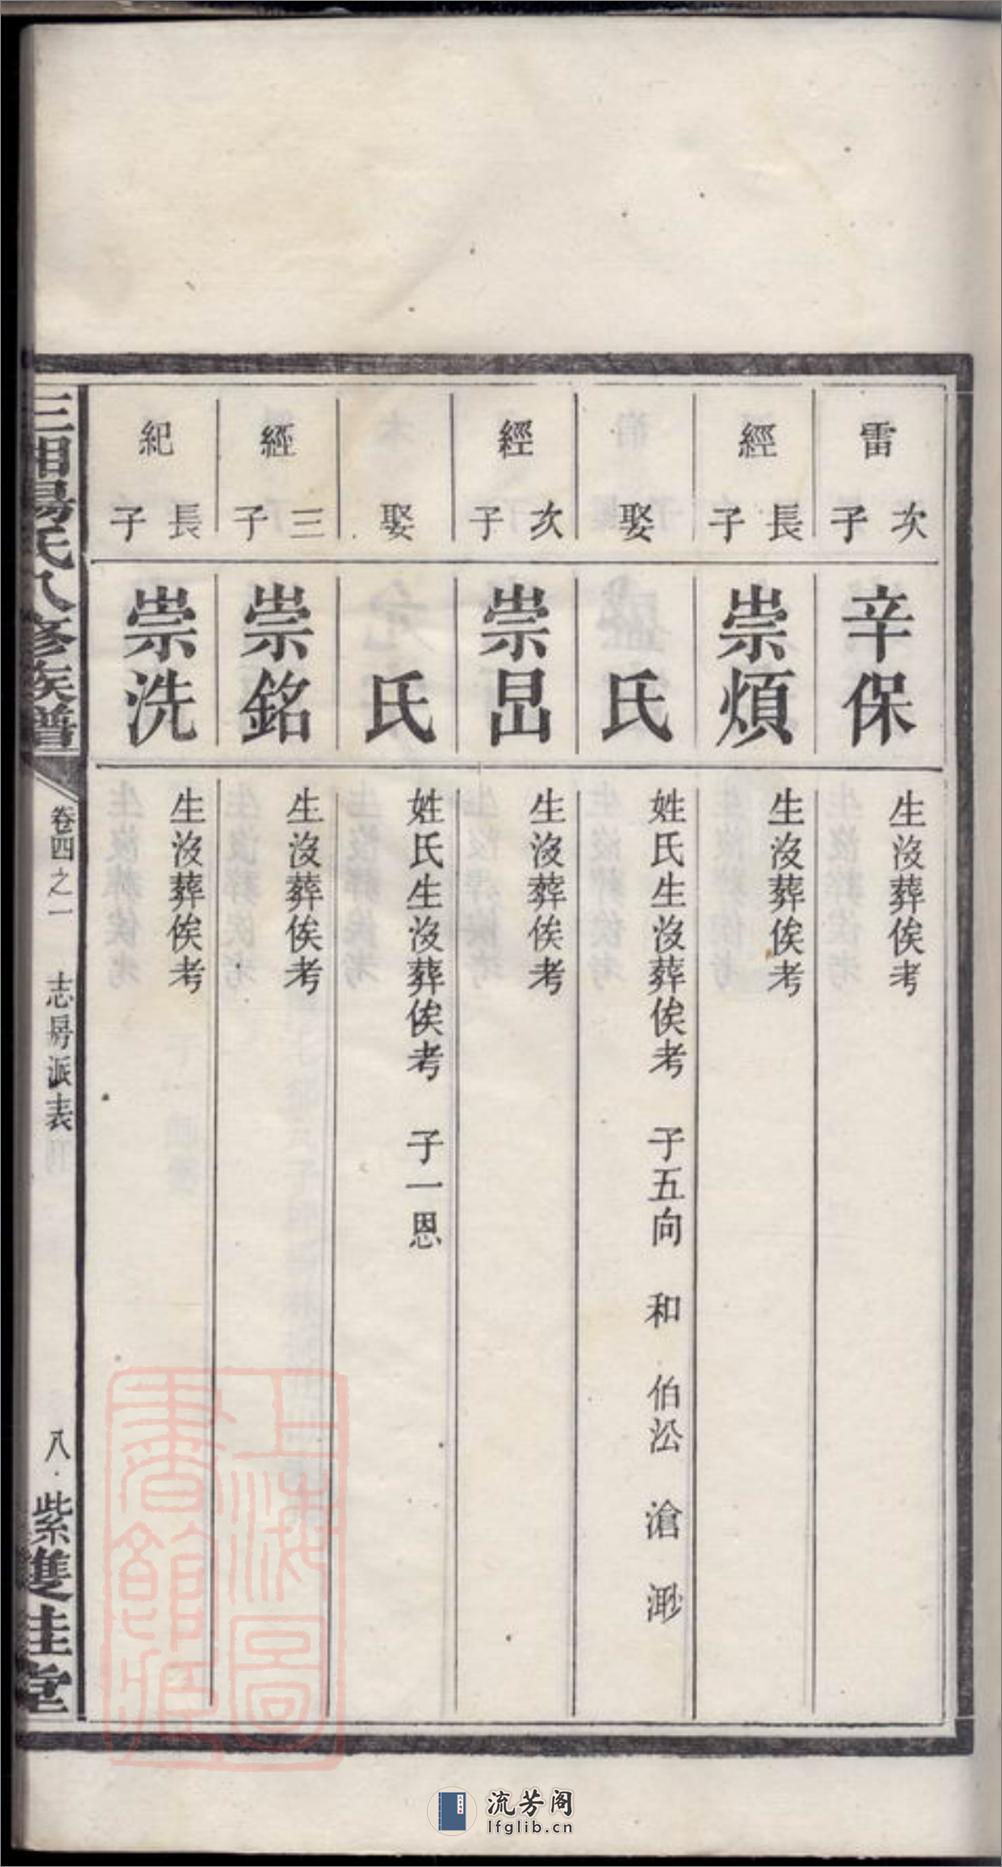 雷次子 辛保 生沒葬俟考
經長子 崇煩 生沒葬俟考
娶 氏 姓氏生沒葬俟考 子五向 和 伯㳂 滄
經次子 崇昌 生沒葬俟考
娶 氏 姓氏生沒葬俟考 子一恩
經三子 崇銘 生沒葬俟考
紀長子 崇洗 生沒葬俟考
三湘易氏八修族譜 卷四之一 志房派表 八 紫雙桂堂
上海圖書館藏
流芳阁
lfglib.cn